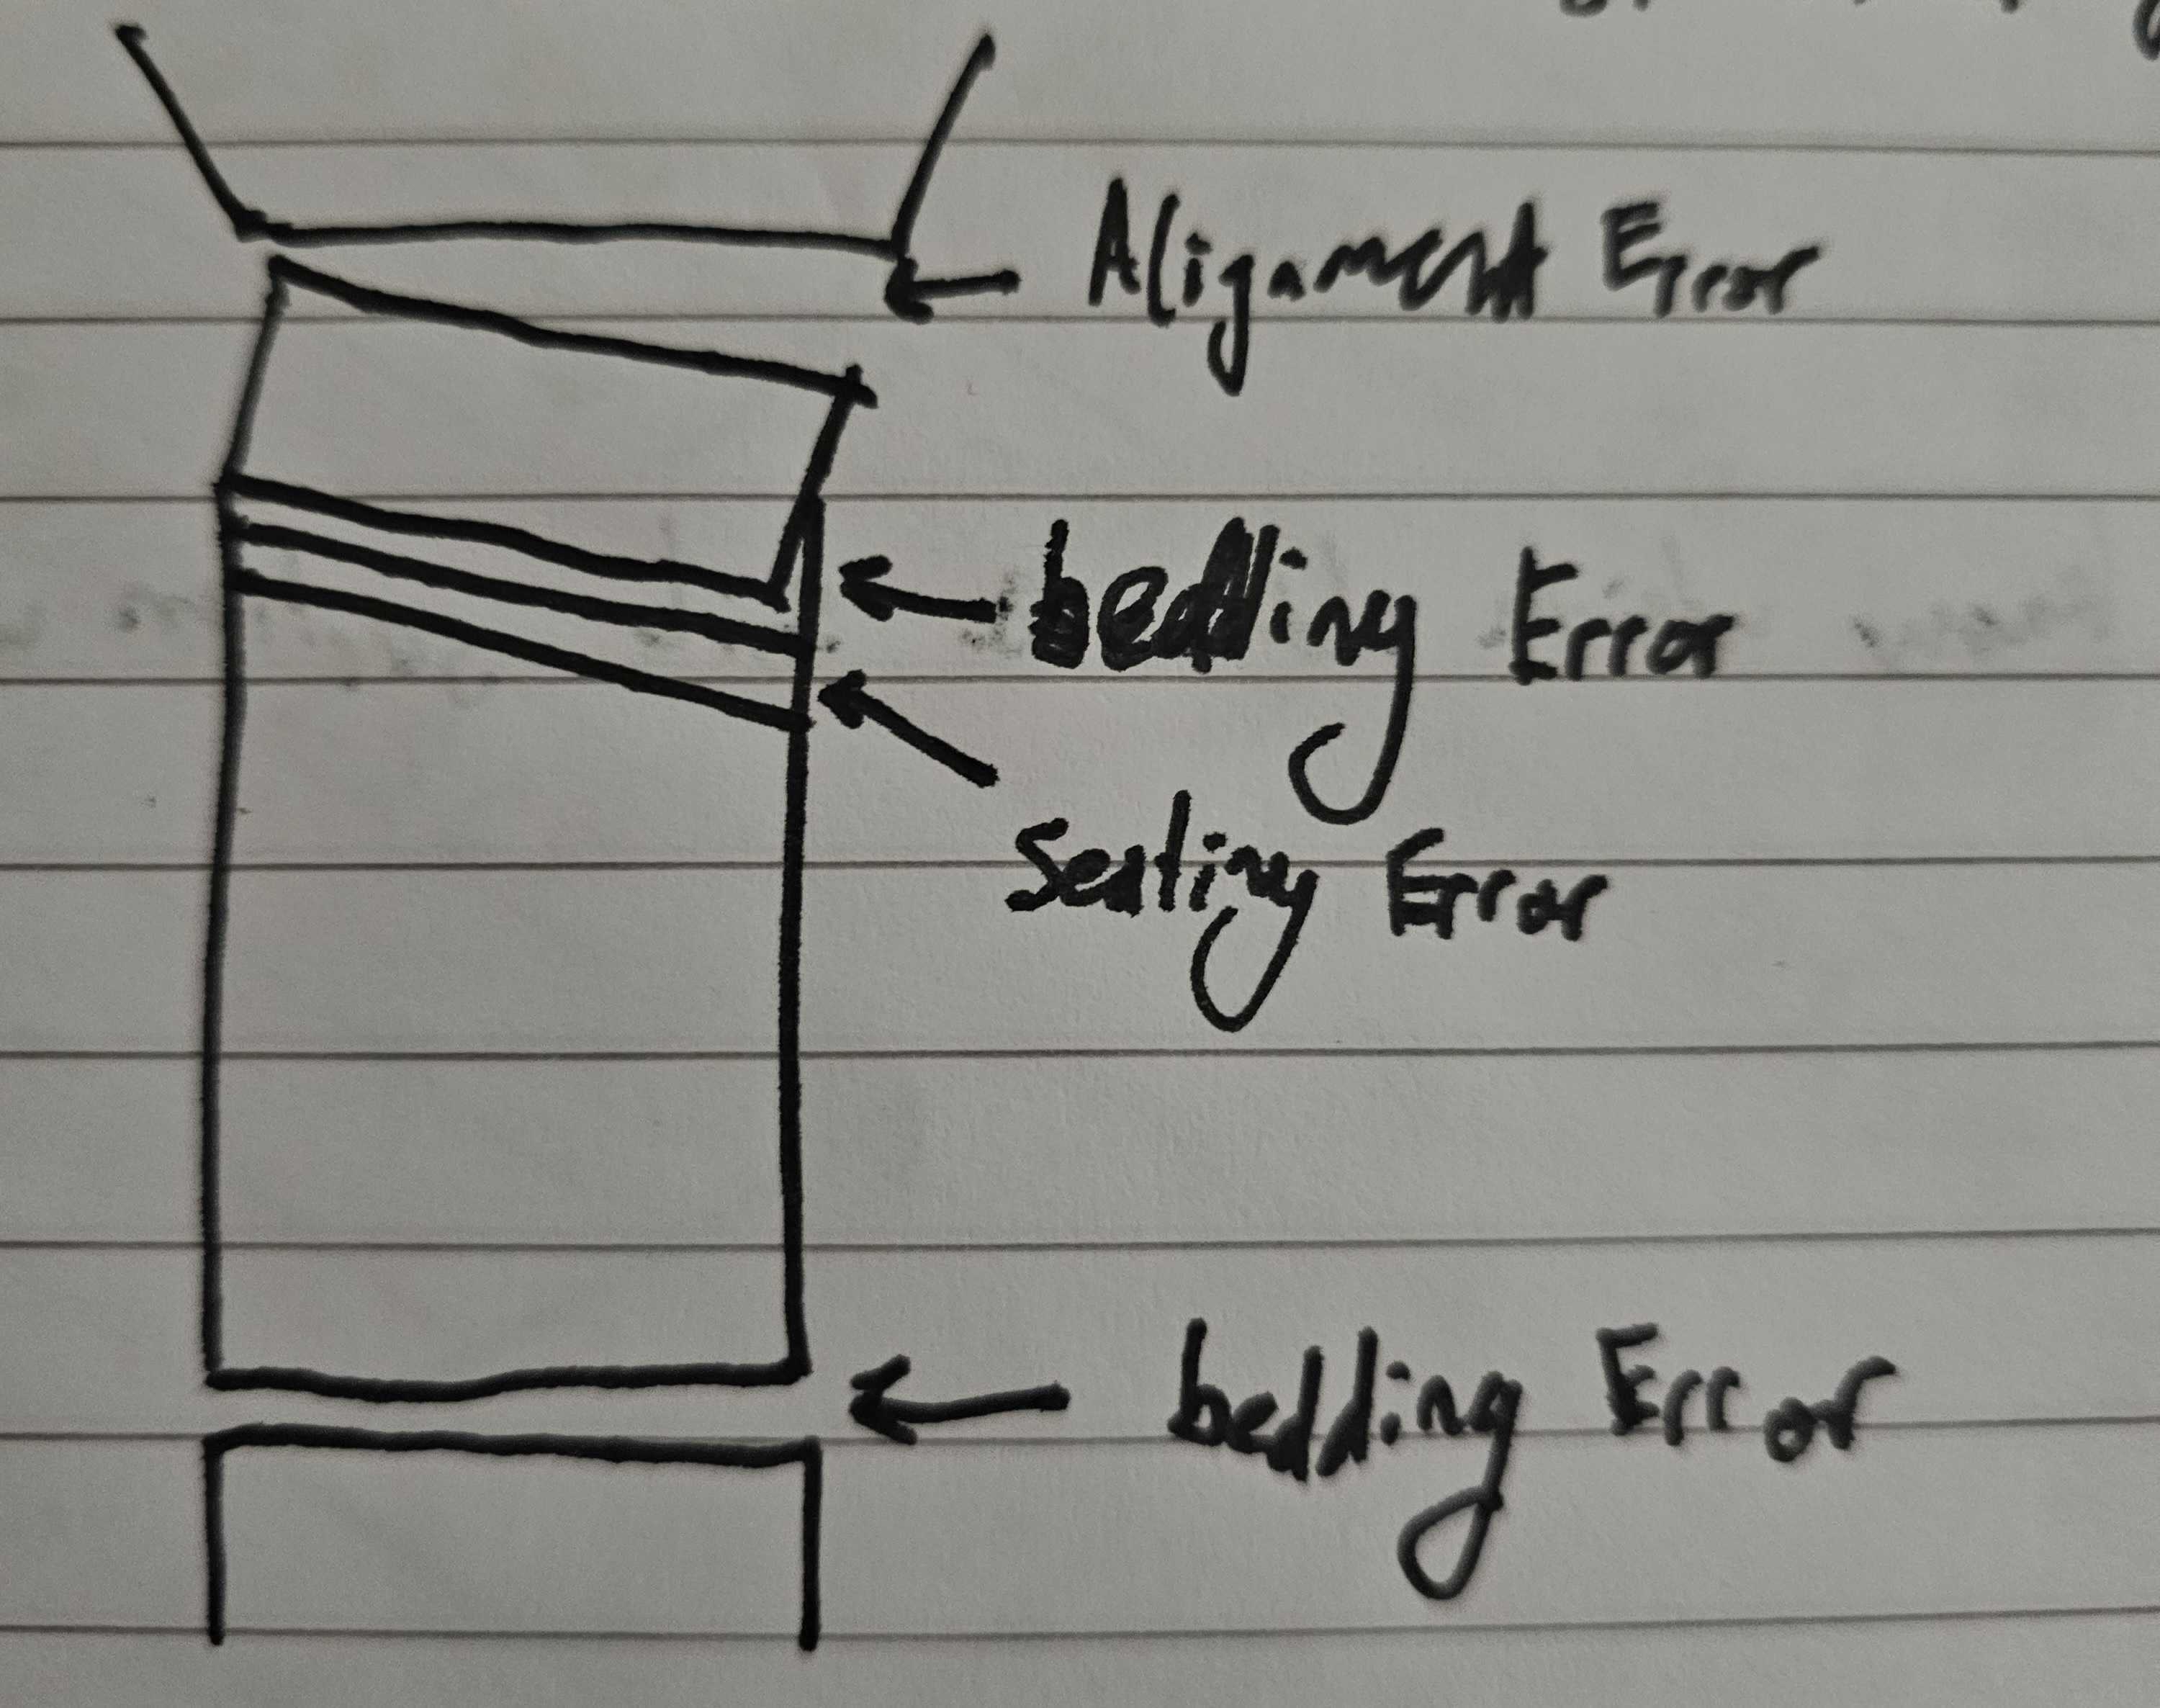 Alignment Error
bedding Error
Seating Error
bedding Error